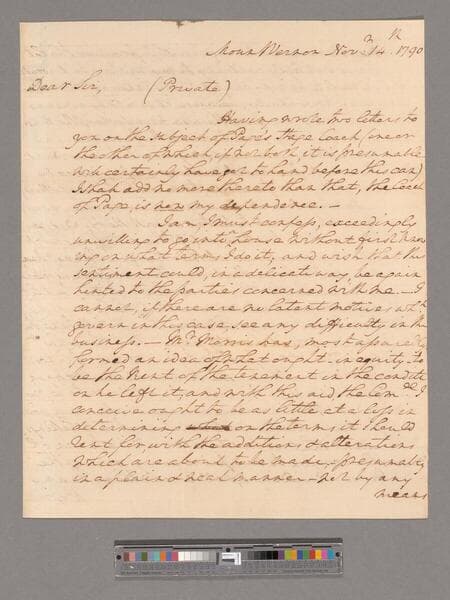 Mount Vernon Novr 14th 1790
Dear Sir, (Private)
Having wrote two letters to
you on the subject of Page's Stage Coach (one or
the other of which, if not both, it is presumable
will certainly have got to hand before this can)
I shall add no more thereto than that, the Coach
of Page, is now my dependence. —
I am, I must confess, exceedingly
unwilling to go into any house without first know
ing on what terms I do it; and wish that this
sentiment could, in a delicate way, be again
hinted to the parties concerned with me. — I
cannot, if there are no latent motives wch
govern in this case, see any difficulty in the
business. — Mr Morris has, most assuredly
formed an idea of what ought in equity to
be the Rent of the tenement in the conditi
on he left it; and with this aid the Comee I
conceive ought to be as little at a loss in
determining on the terms it should
rent for, with the additions & alterations
which are about to be made, presumably
in a plain & neat manner — not by any
means